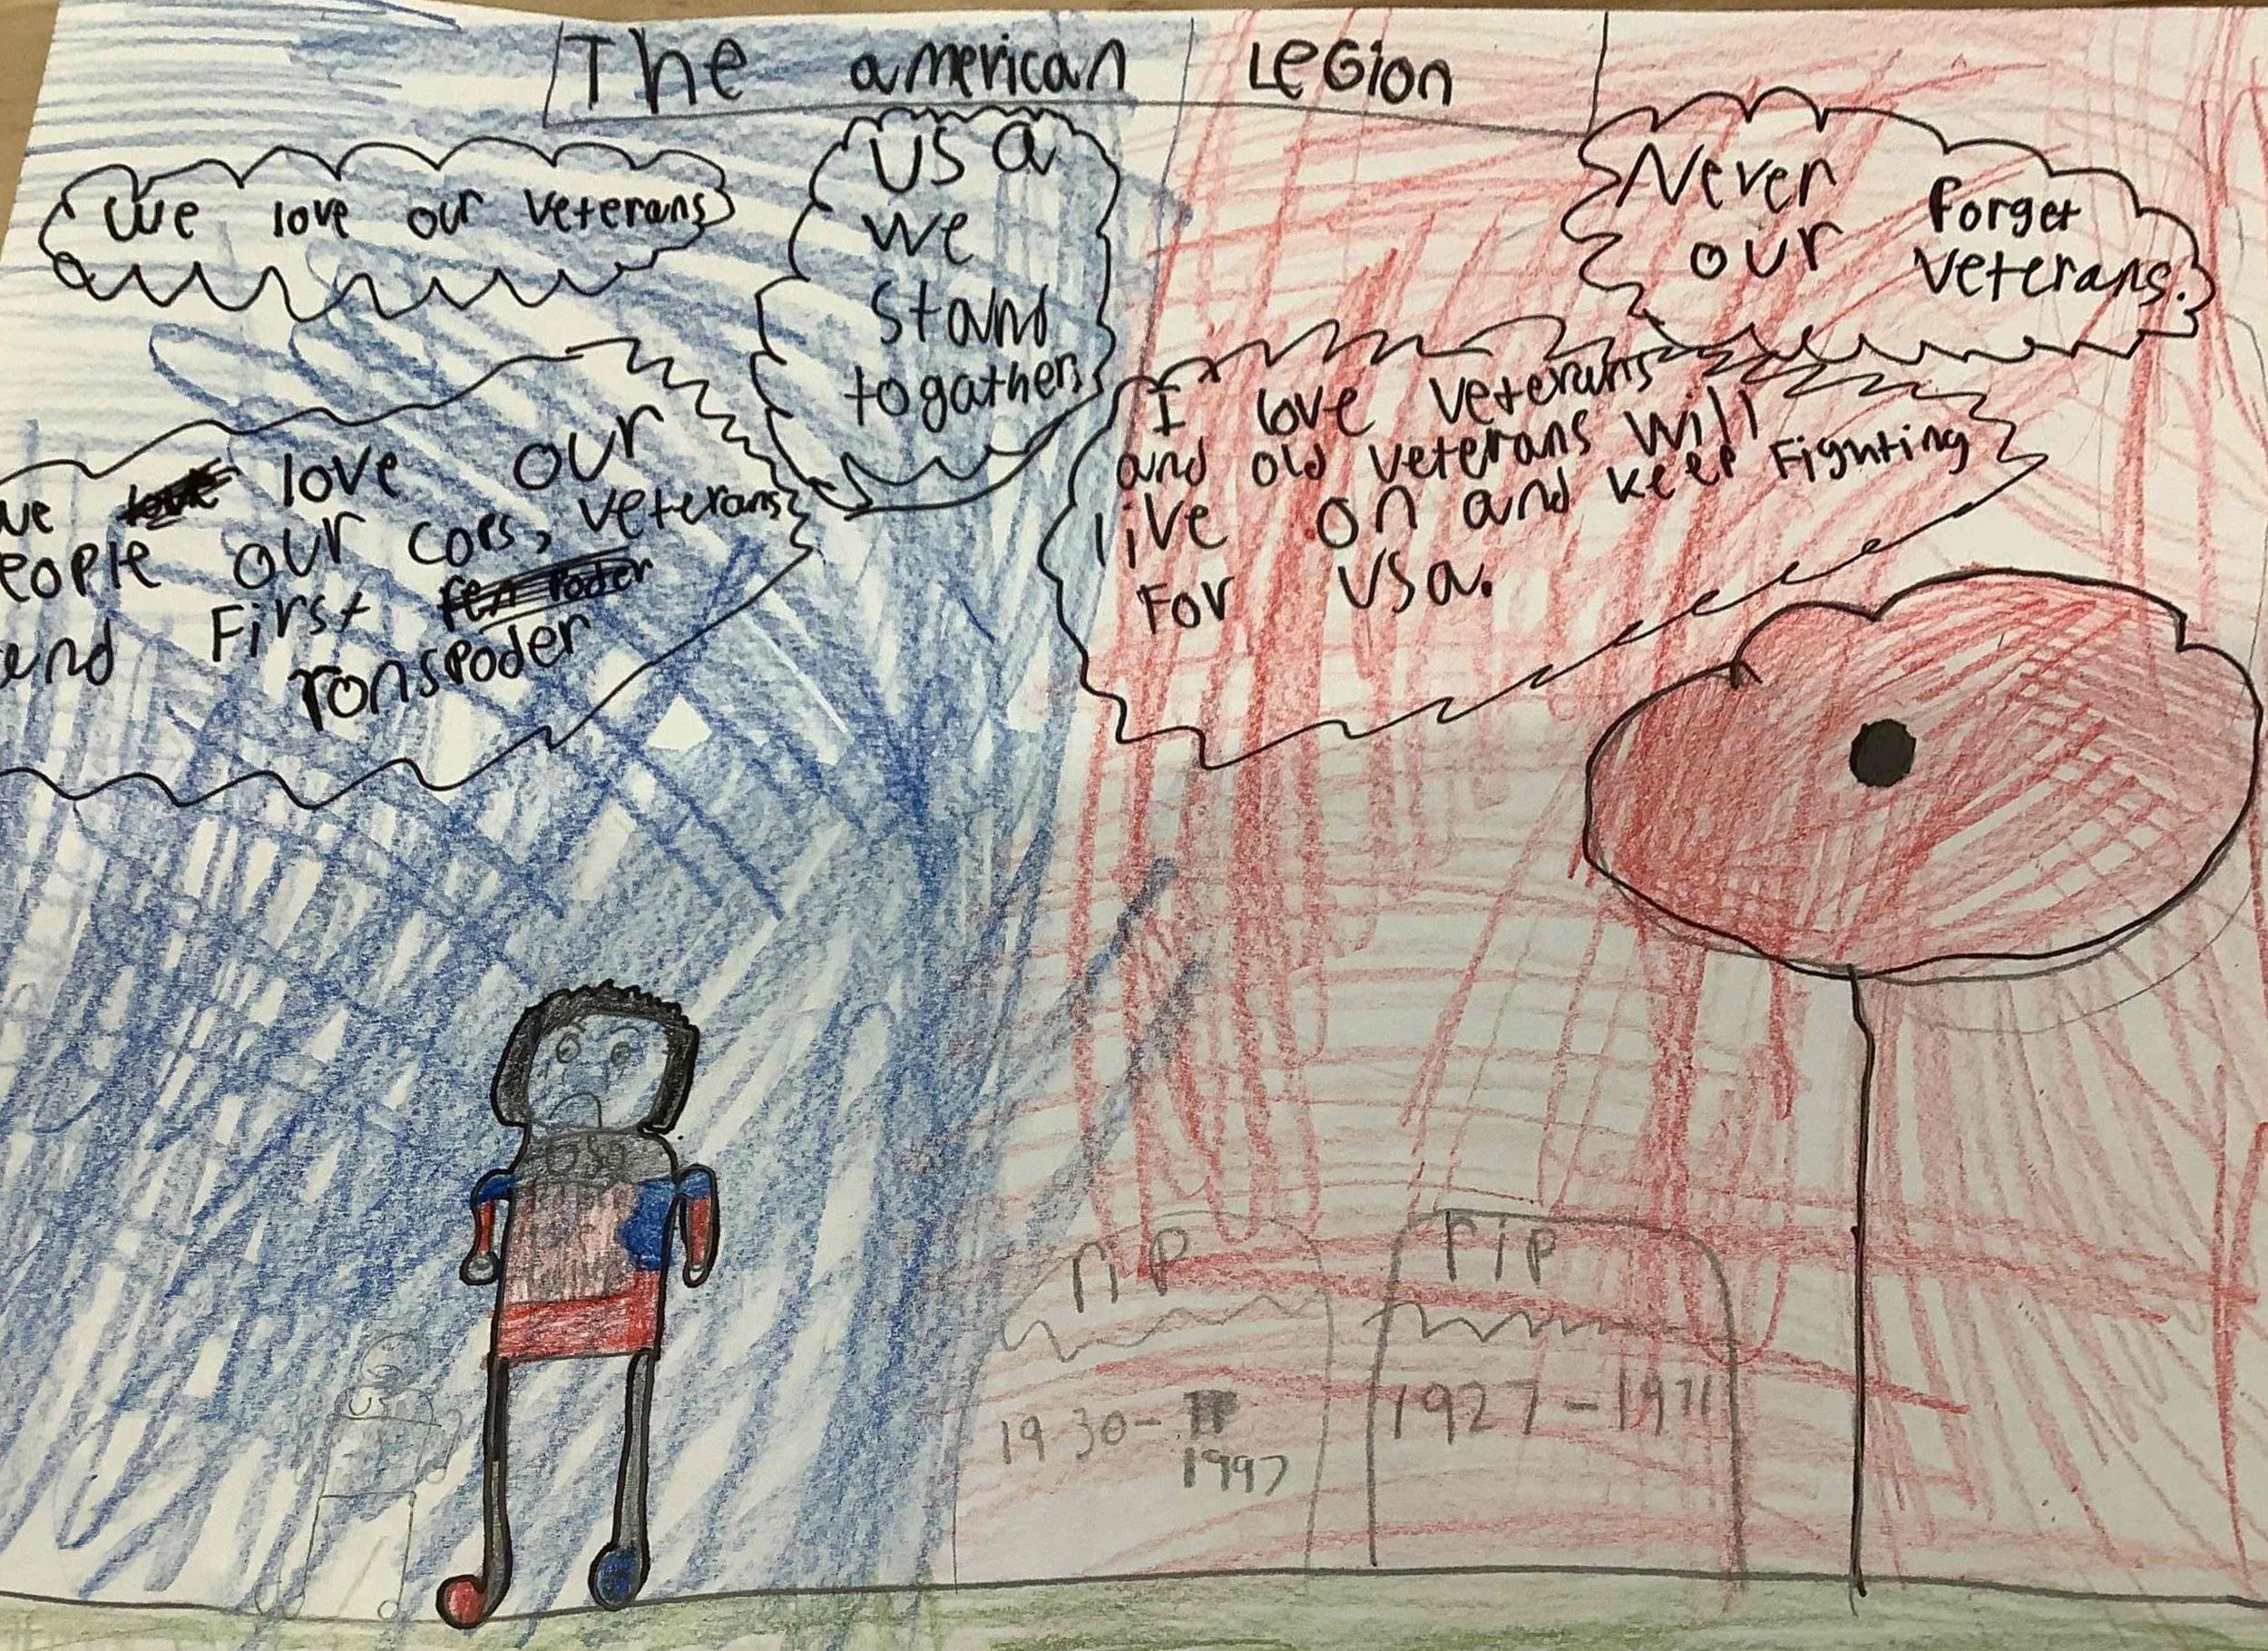 The american LEGion
We love our veterans
USa
we
stand
togather
Never forget
our veterans.
we love our
eople our cops, veterans
end First
ronspoder
I love veterans
and old veterans will
live on and keep Fighting
For USa.
rip
1930-
1997
rip
1927-1971